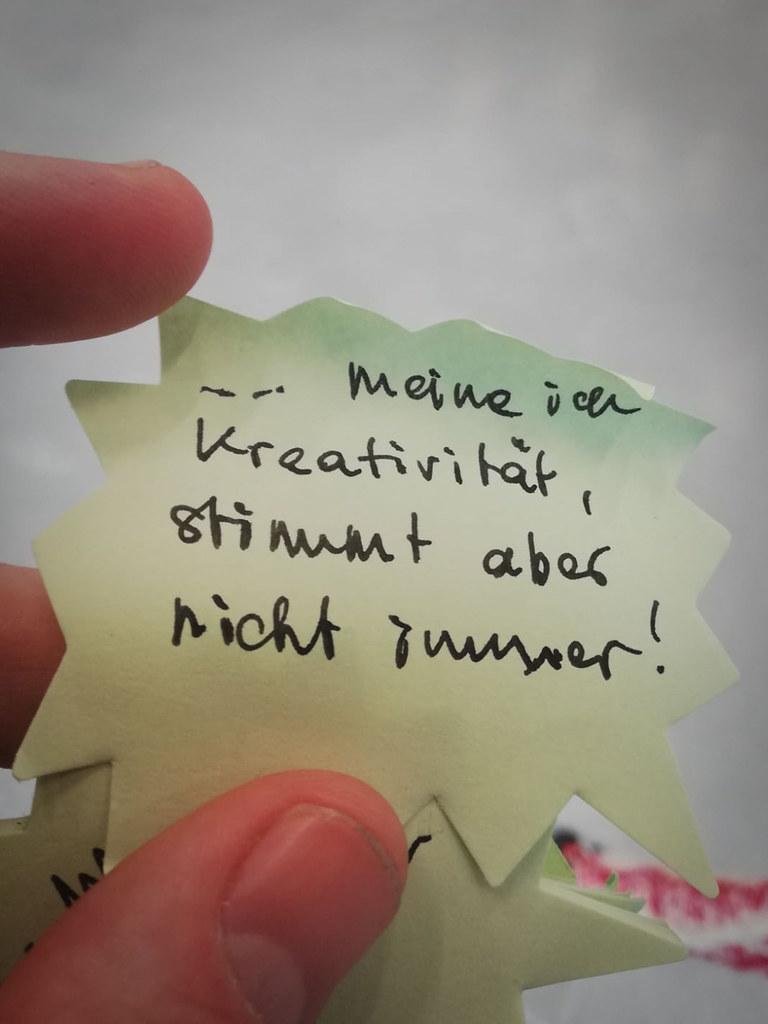 --- meine ich
Kreativität,
stimmt aber
nicht immer!